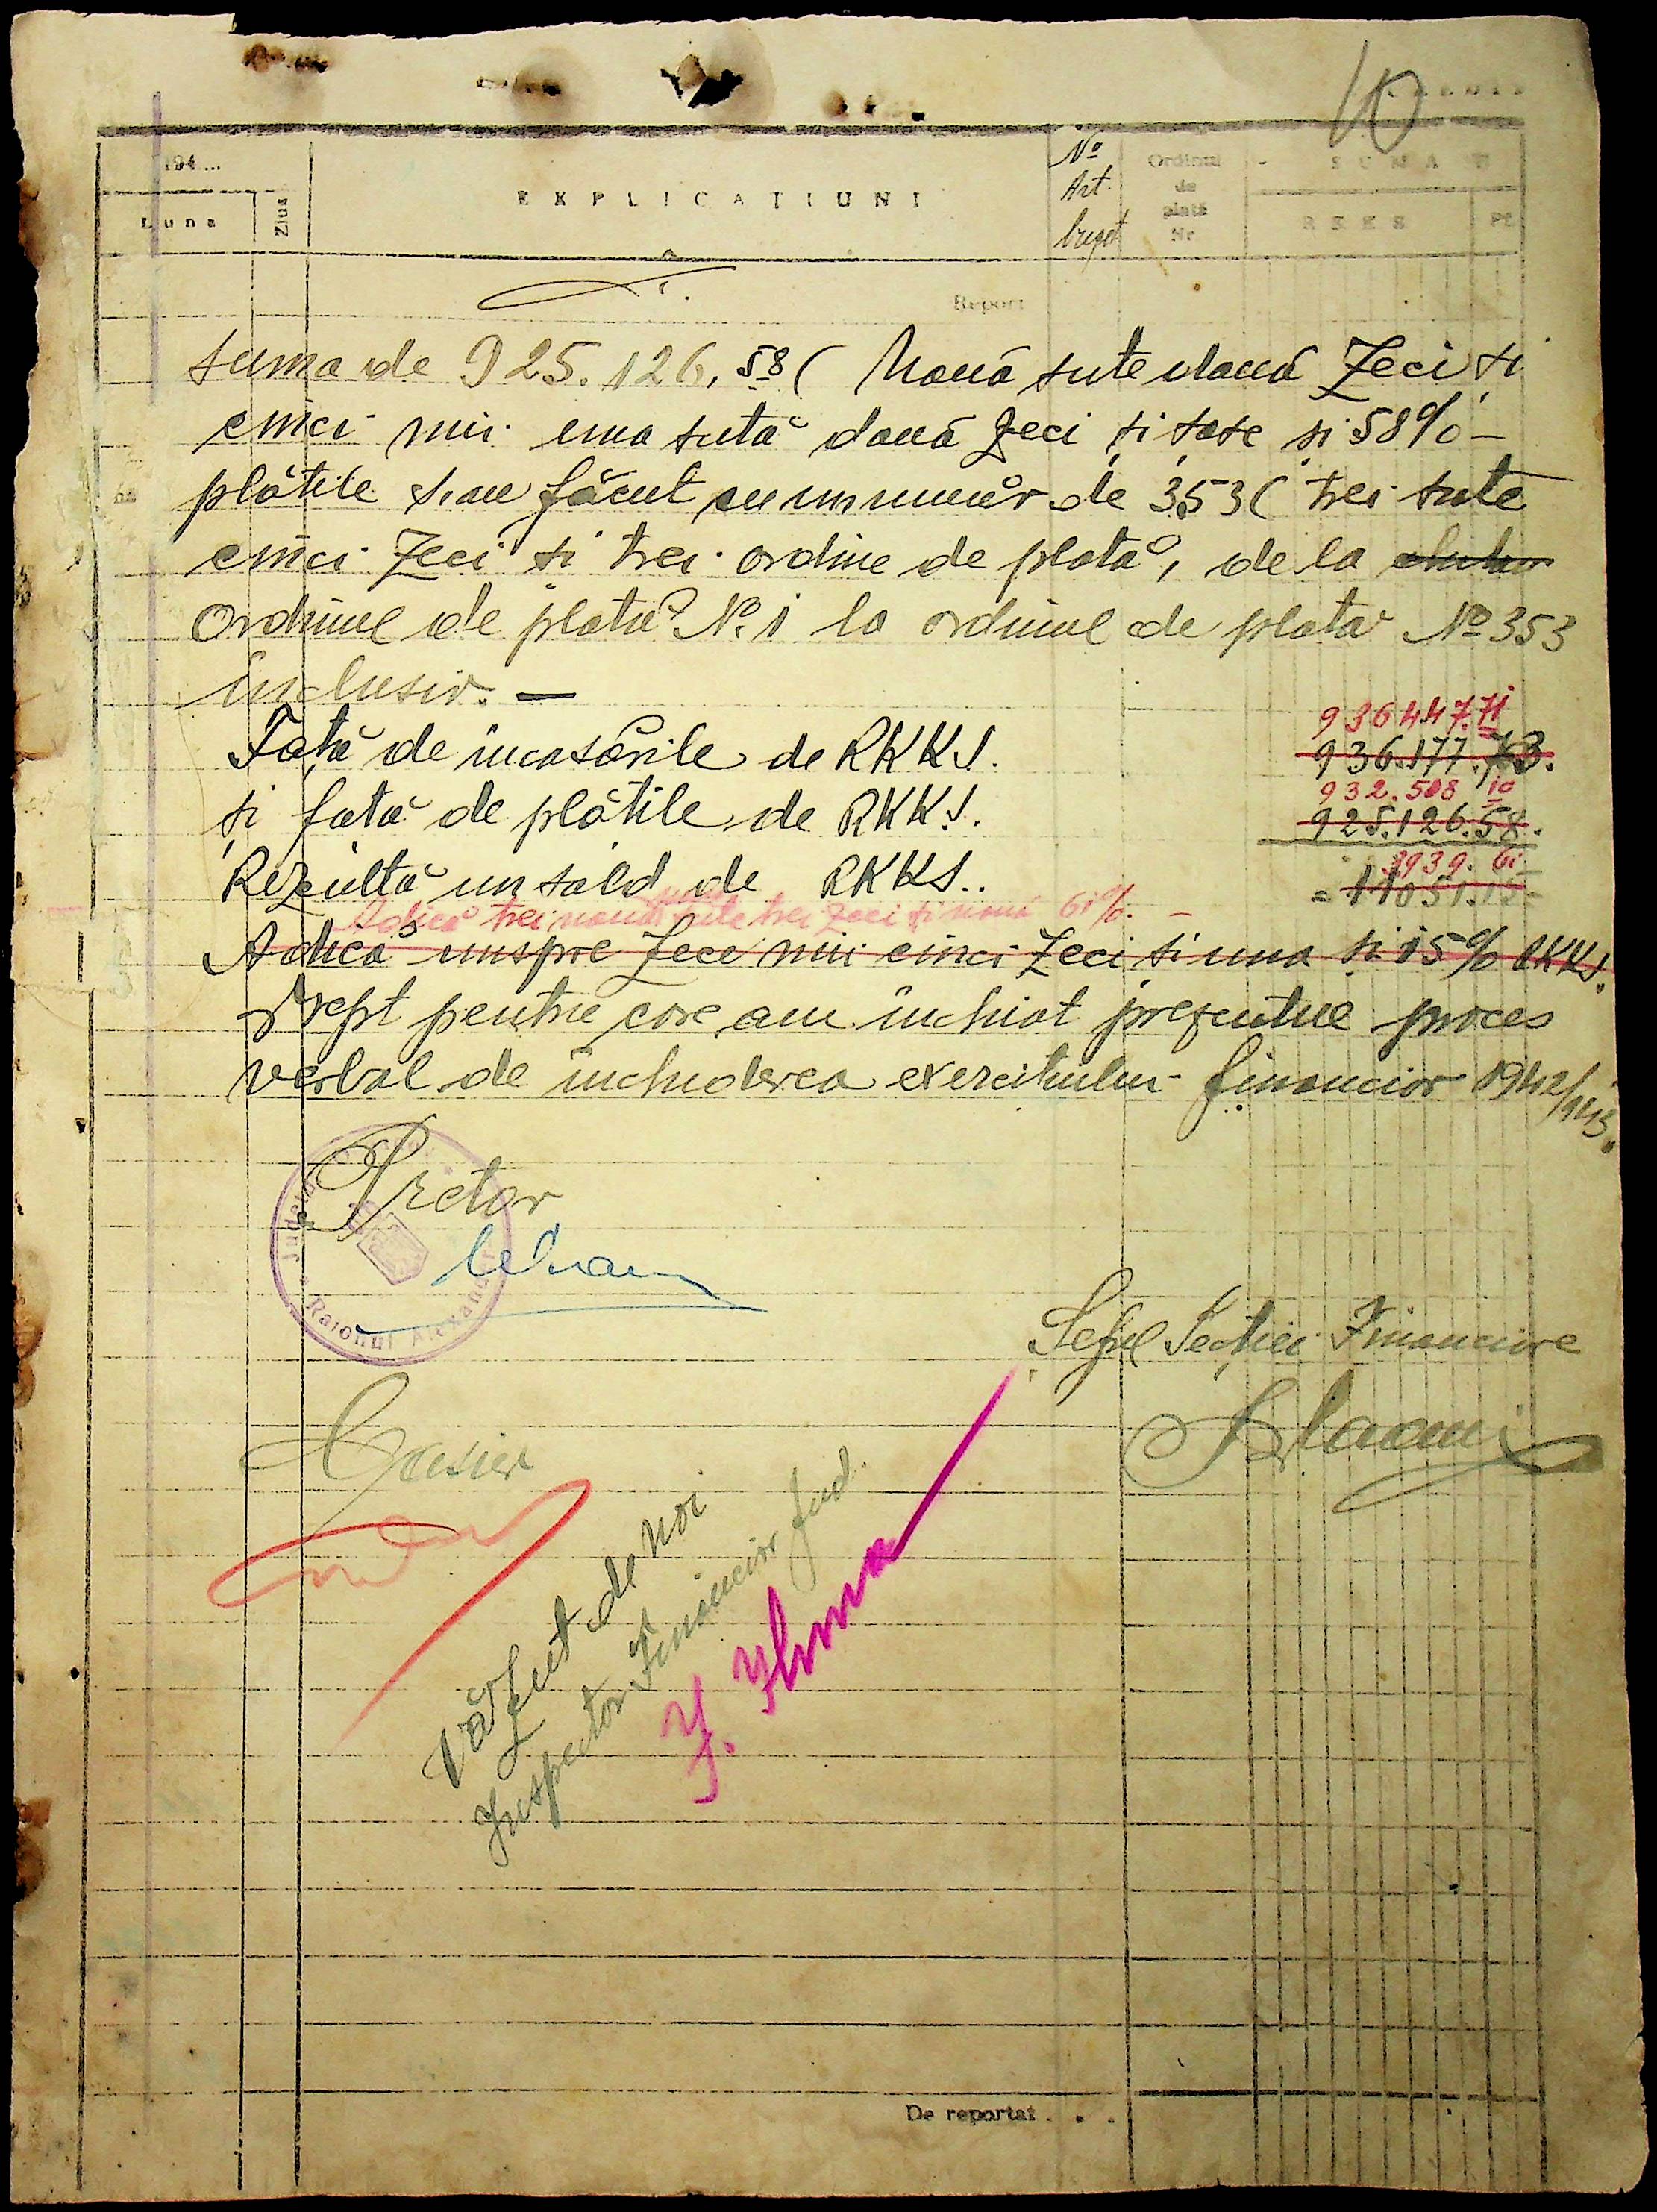 10
194...
Luna
Ziua
EXPLICAŢIUNI
No Art. buget
Ordinul de plată Nr
SUMA
RKKS
Pf.
Report
suma de 925.126,58 ( Nouă sute două zeci si
cinci mii una sută două zeci și șase și 58% –
plătile s'au făcut cu un număr de 353 ( trei sute
cinci zeci si trei ordine de plată, de la
Ordinul de plată No. 1 la ordinul de plată No 353
inclusiv. —
936447.71
Față de încasările de RKKS. 936.177.73.
932.508 10
și fată de plătile de RKKS. 925.126.58.
3939. 61
Rezultă un sold de RKKS.. = 11051.15=
Adică trei mii nouă sute trei zeci si nouă 61%. –
Adică unspre zece mii cinci zeci si una si 15% RKKS.
Drept pentru care am închiat prezentul proces
verbal de închiderea exercitiului financiar 1942/943.
Pretor
Judetul
Raionul Alexand
Seful Sectiei Financiare
Casier
Văzut de noi
Inspector Financiar Jud.
De reportat . . .